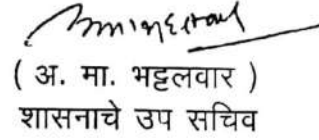 ( अ. मा. भट्टलवार )
शासनाचे उप सचिव